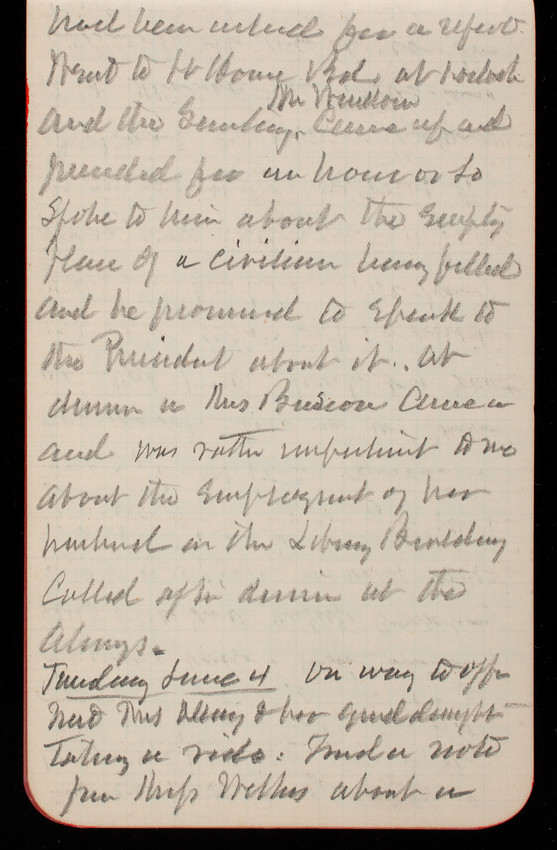 had been asked for a report.
Went to H Home Bd. at 1 oclock
Mr Windom
and the Secretary. Came up and
presided for an hour or so
Spoke to him about the empty
place of a civilian being filled
and he promised to speak to
the President about it. At
dinner a Mrs came in
and was rather impertinent to me
about the employment of her
husband on the Library Building
Called after dinner at the
Almys.
Tuesday June 4 On way to office
Mrs Almy & her grand daught
taking a ride. Find a note
from Miss about a